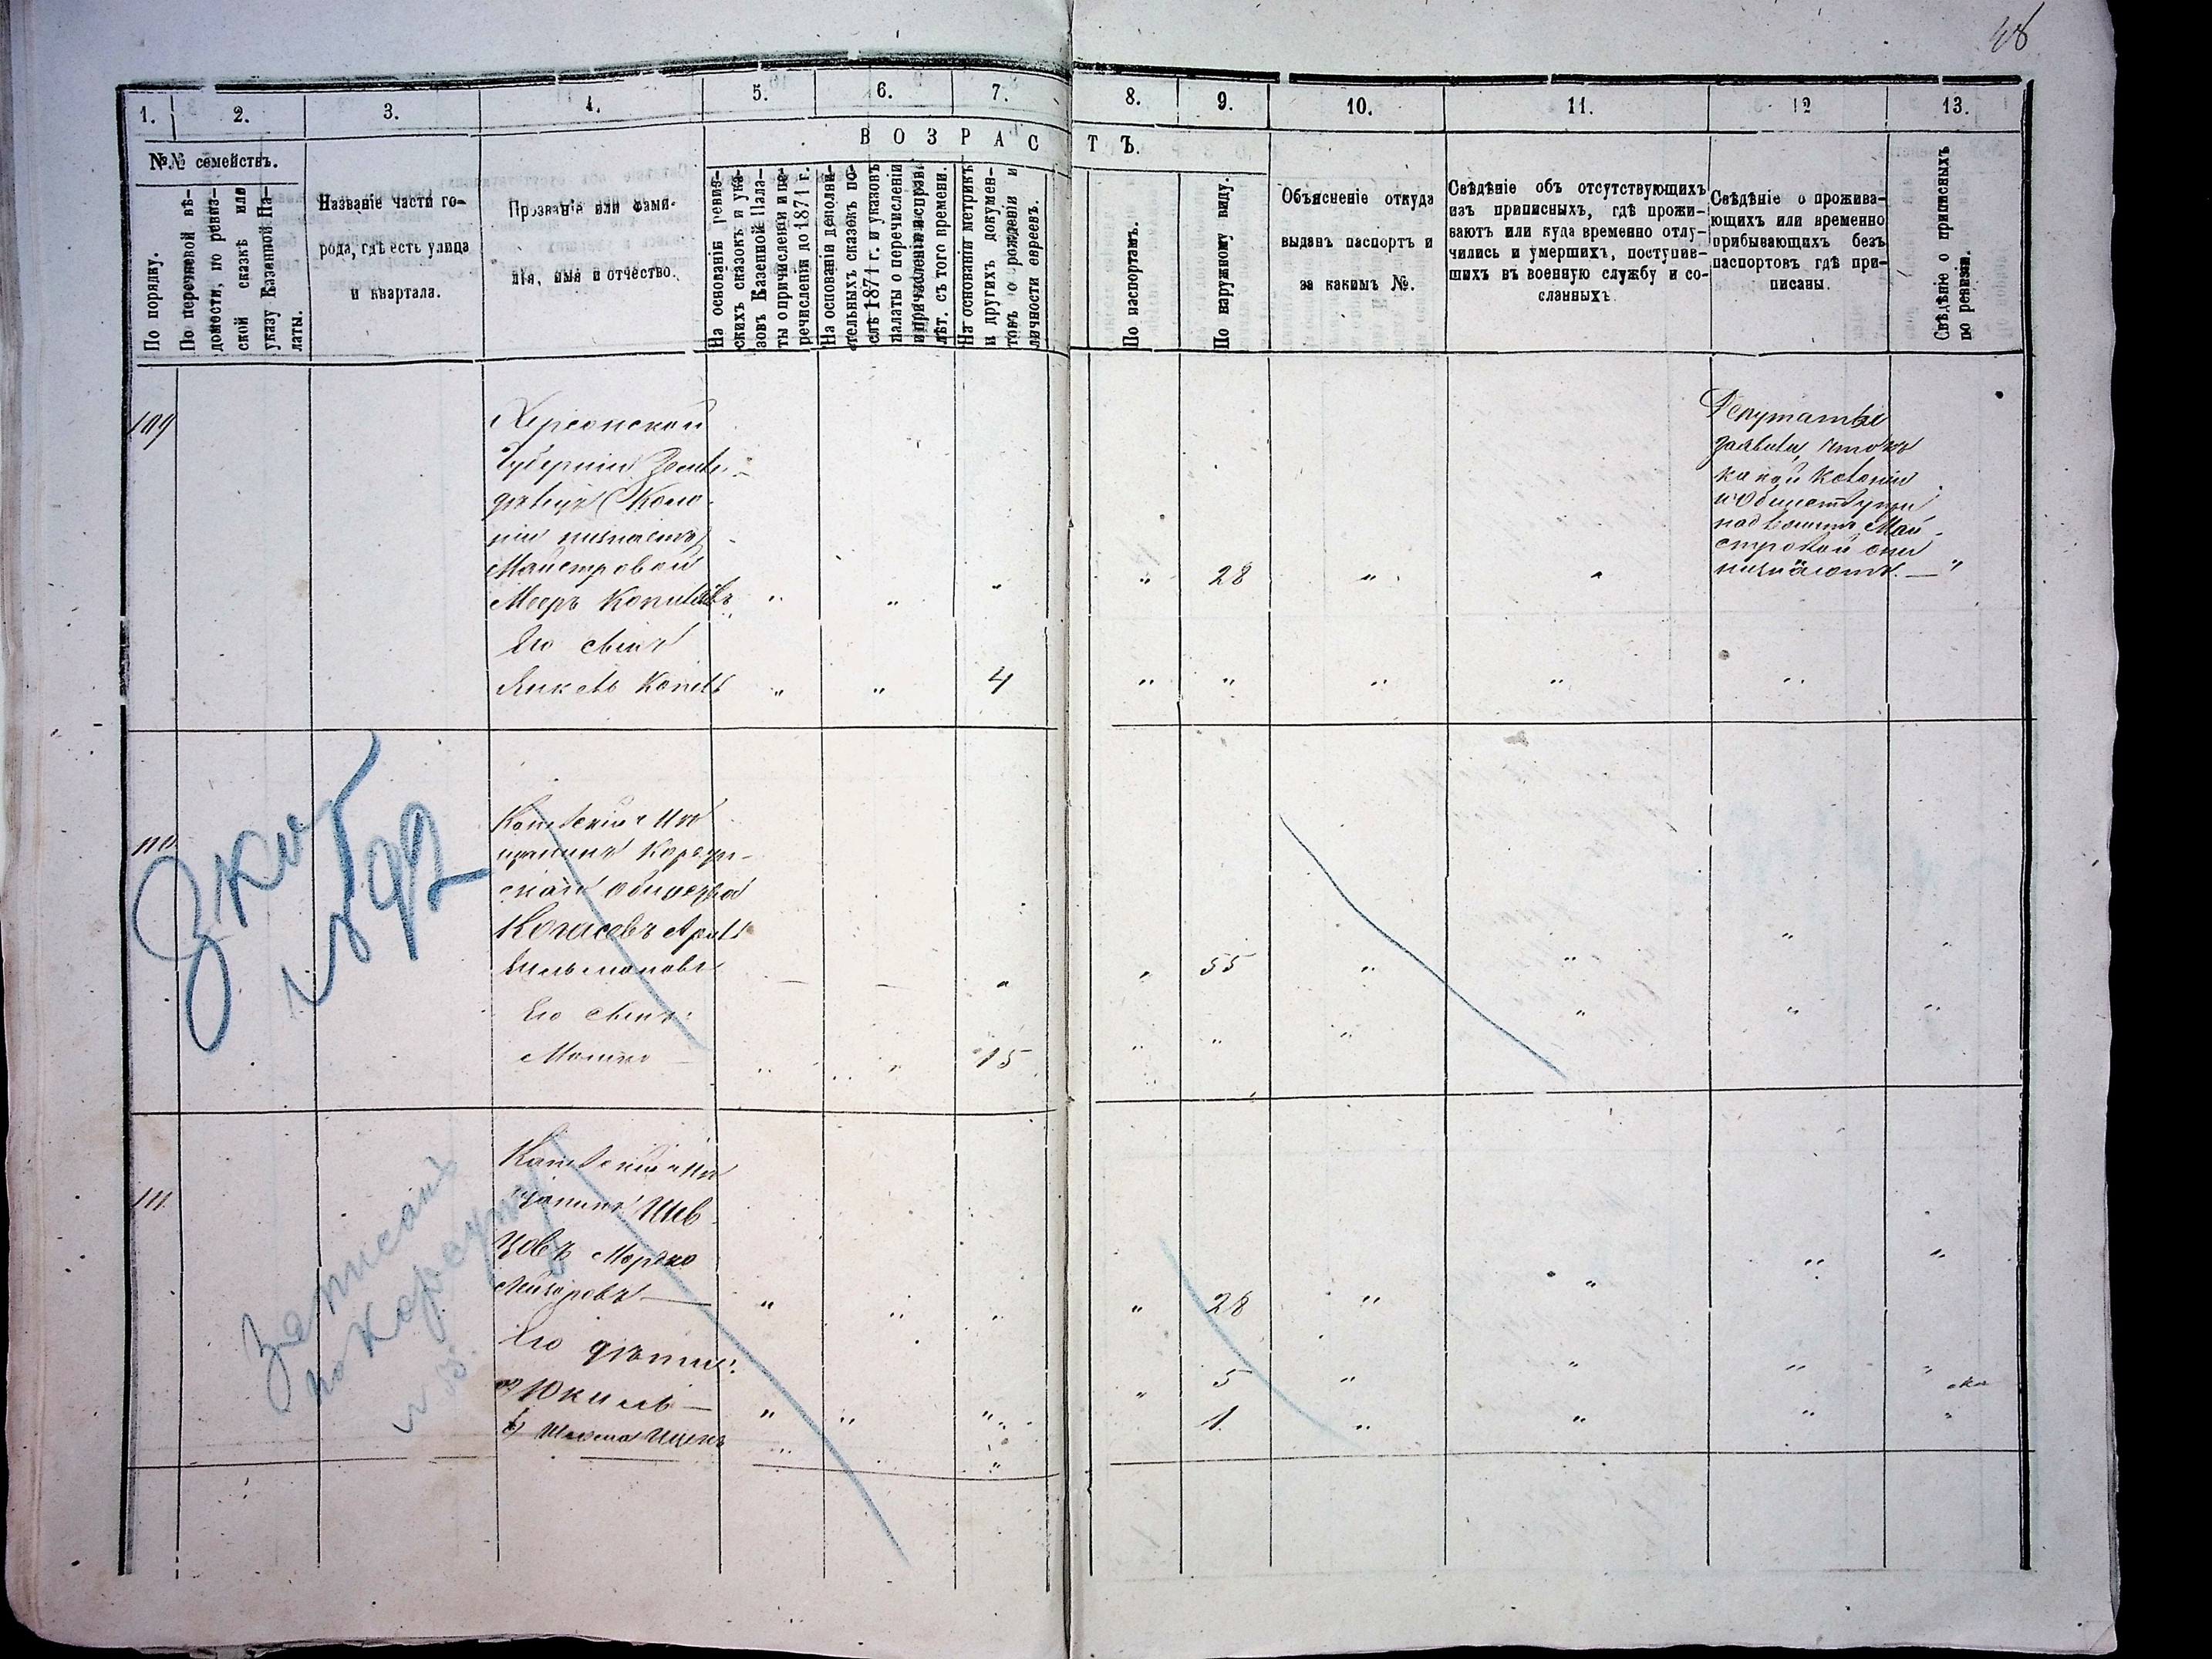 48
1. 2. 3. 4. 5. 6. 7. 8. 9. 10. 11. 12 13.
№№ семействъ.
ВОЗРАСТЪ.
По порядку.
По перечневой вѣ-
домости, по ревиз-
ской сказкѣ или
указу Казенной Па-
латы.
Названіе части го-
рода, гдѣ есть улица
и квартала.
Прозваніе или фами-
лія, имя и отчество.
На основаніи ревиз-
скихъ сказокъ и ука-
зовъ Казенной Пала-
ты о причисленіи и пе-
речисленіи до 1871 г.
На основаніи дополни-
тельныхъ сказокъ по-
слѣ 1871 г. и указовъ
палаты о перечисленіи
и причисленіи и справ.
лѣт. съ того времени.
На основаніи метрикъ
и другихъ докумен-
товъ о рожденіи и
личности евреевъ.
По паспортамъ.
По наружному виду.
Объясненіе откуда
выданъ паспортъ и
за какимъ №.
Свѣдѣніе объ отсутствующихъ
изъ приписныхъ, гдѣ прожи-
ваютъ или куда временно отлу-
чились и умершихъ, поступив-
шихъ въ военную службу и со-
сланныхъ.
Свѣдѣніе о прожива-
ющихъ или временно
прибывающихъ безъ
паспортовъ гдѣ при-
писаны.
Свѣдѣніе о приписныхъ
по ревизіи.
109
Херсонской
Губерніи Земле-
дѣлецъ (Коло-
ніи неизвѣстно)
Майстровой
Мееръ Копилевъ " " " " 28 " "
Его сынъ
Янкель " " 4 " " " " "
Депутаты
заявили, что къ
какой колоніи
и обществу при-
надлежитъ Май-
стровой они
незнаютъ. — "
110
щанинъ Корсун-
скаго общества
Аронъ
" 55 " " " "
Его сынъ:
Мошко — " " 15 " " " " " "
№ 92
111.
щанинъ Шев-
цовъ Мордко
Лейзеровъ — " " " " 28 " " " "
Его дѣти:
а) Юкиль — " " " " 5 " " " "
б) " " 1. " " " "
Записанъ
по Корсуну
№ 3.